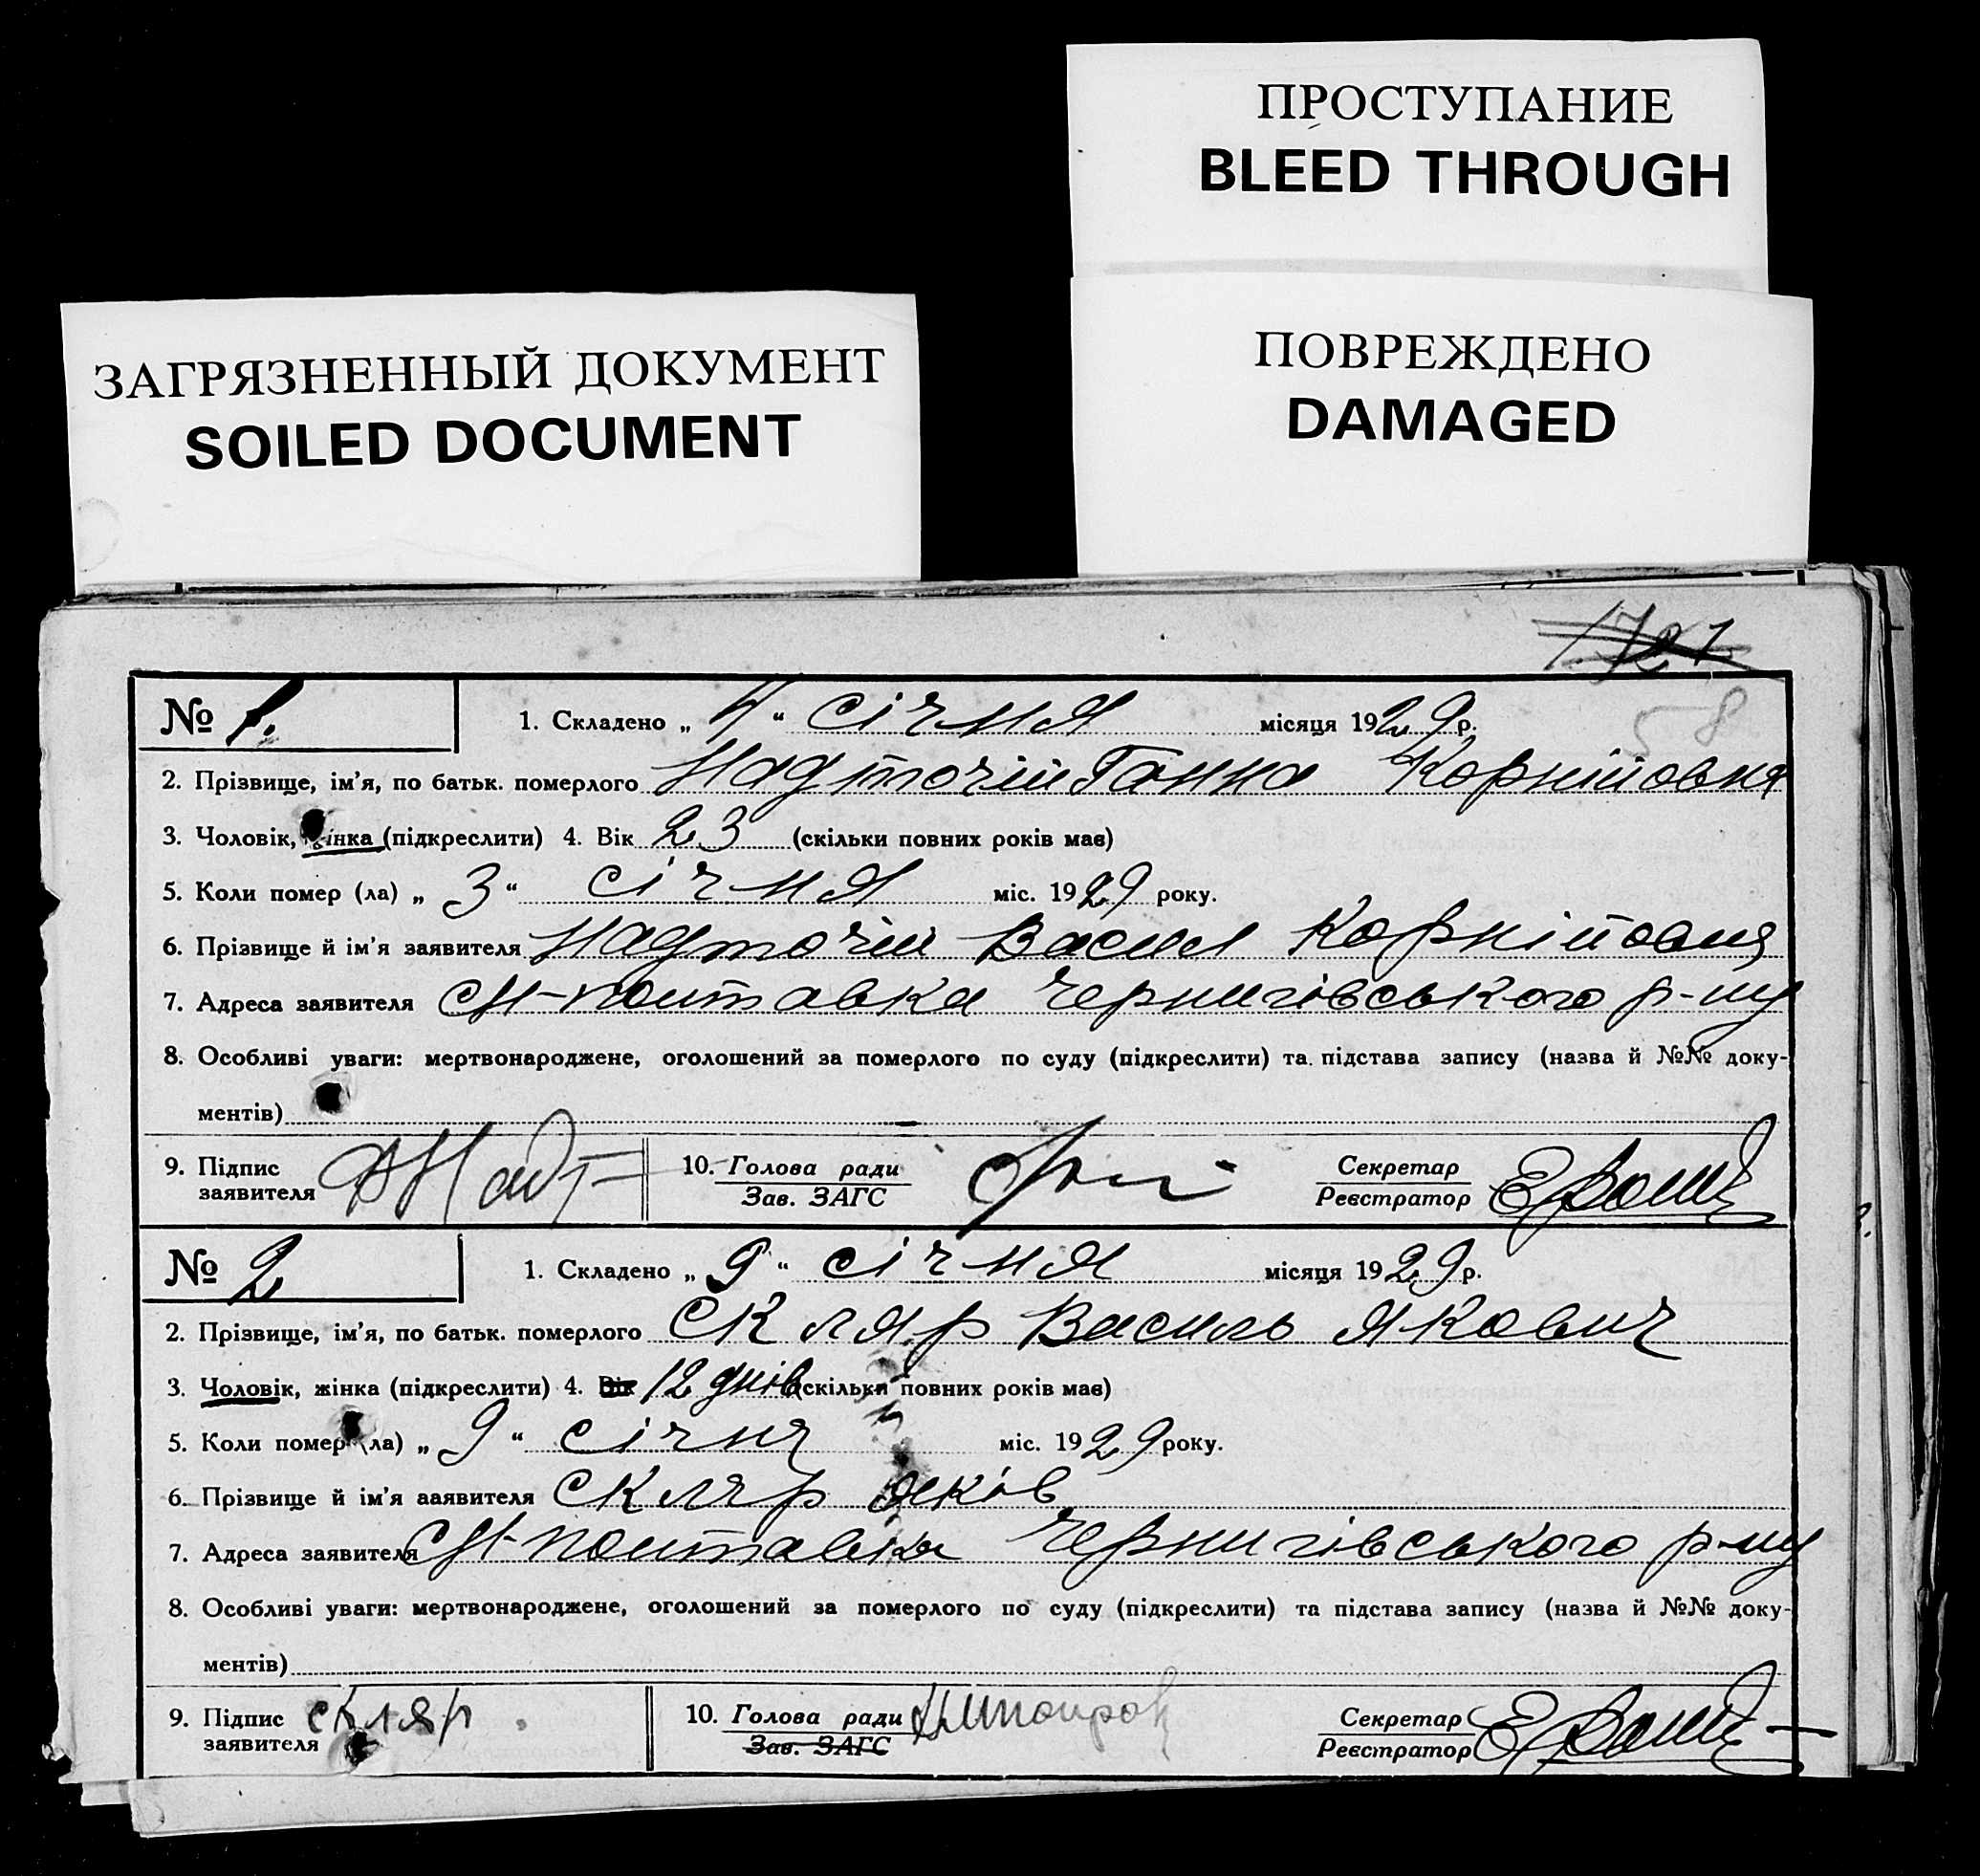 ПРОСТУПАНИЕ
BLEED THROUGH
ЗАГРЯЗНЕННЫЙ ДОКУМЕНТ
SOILED DOCUMENT
ПОВРЕЖДЕНО
DAMAGED
58
№ 1. 1. Складено „ 4 “ січня місяця 1929 р.
2. Прізвище, ім'я, по батьк. померлого Надточій Ганна Корнійовня
3. Чоловік, жінка (підкреслити) 4. Вік 23 (скільки повних років має)
5. Коли помер (ла) „ 3 “ січня міс. 1929 року.
6. Прізвище й ім'я заявителя Надточій Васил Корнійовия
7. Адреса заявителя Черниговського р-ну
8. Особливі уваги: мертвонароджене, оголошений за померлого по суду (підкреслити) та підстава запису (назва й №№ доку-
ментів)
9. Підпис заявителя 10. Голова ради Зав. ЗАГС Секретар Реєстратор
№ 2 1. Складено „ 9 “ січня місяця 1929 р.
2. Прізвище, ім'я, по батьк. померлого Скляр Василь Якович
3. Чоловік, жінка (підкреслити) 4. Вік 12 днів (скільки повних років має)
5. Коли помер (ла) „ 9 “ січня міс. 1929 року.
6. Прізвище й ім'я заявителя Скляр Яків
7. Адреса заявителя Черниговського р-ну
8. Особливі уваги: мертвонароджене, оголошений за померлого по суду (підкреслити) та підстава запису (назва й №№ доку-
ментів)
9. Підпис заявителя Скляр 10. Голова ради Зав. ЗАГС Секретар Реєстратор